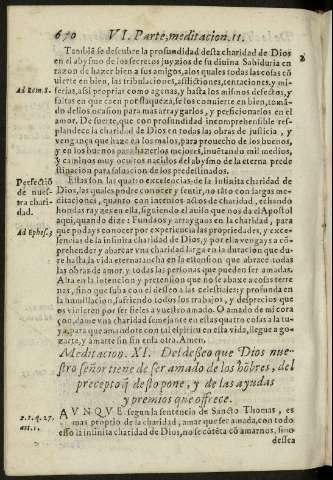 670 VI. Parte, meditacion. 11.
Tambiẽ se descubre la profundidad desta charidad de Dios
en el abysmo de los secretos juyzios de su diuina Sabiduria en
razon de hazer bien a sus amigos, a los quales todas las cosas cõ
uierte en bien, las tribulaciones, aflicciones, tentaciones, y mi-
Ad Rom. 8.
serias, assi propias como agenas, y hasta los mismos defectos, y
faltas en que caen por flaqueza, se los conuierte en bien, tomã-
do dellos ocasion para mas arraygarlos, y perficionarlos en el
amor. De suerte, que con profundidad incomprehensible res-
plandece la charidad de Dios en todas las obras de justicia, y
vengança que haze en los malos, para prouecho de los buenos,
y en los buenos para hazerlos mejores, inuentando mil medios,
y caminos muy ocultos nacidos del abysmo de la eterna prede
stinacion para saluacion de los predestinados.
Perfectiõ
de nues-
tra chari-
dad.
Estas son las quatro excelencias, de la infinita charidad de
Dios, las quales podre conocer y sentir, no tãto con largas me-
ditaciones, quanto con intensos actos de charidad, echando
hondas rayzes en ella, siguiendo el auiso que nos da el Apostol
Ad Ephes. 3
aqui, quando dize: Fundaos y arraygaos en la charidad, para
que podays conocer por experiencia las propiedades, y exce-
lencias de la infinita charidad de Dios, y por ella vengays a cõ-
prehender y abarcar vna charidad larga en la duracion que du-
re hasta la vida eterna, ancha en la estension que abrace todas
las obras de amor y todas las personas que pueden ser amadas.
Alta en la intencion y pretension que no se abaxe a cosas terre
nas, sino que suba con el desseo a las celestiales; y profunda en
la humillacion, sufriendo todos los trabajos, y desprecios que
os vinieren por ser fieles a vuestro amado. O amado de mi cora
çon, dame vna charidad semejante en estas quatro cosas a la tu-
ya, para que amandote con tal espiritu en esta vida, llegue a go-
zarte, y amarte sin fin en la otra. Amen.
Meditacion. XI. Del desseo que Dios nue-
stro señor tiene de ser amado de los hõbres, del
precepto q̃ desto pone, y de las ayudas
y premios que offrece.
2. 2. q. 27.
art. 1.
AVNQVE, segun la sentencia de Sancto Thomas, es
mas proprio de la charidad, amar que ser amada, con todo
esso la infinita charidad de Dios, no se cõtẽta cõ amarnos, sino
dessea